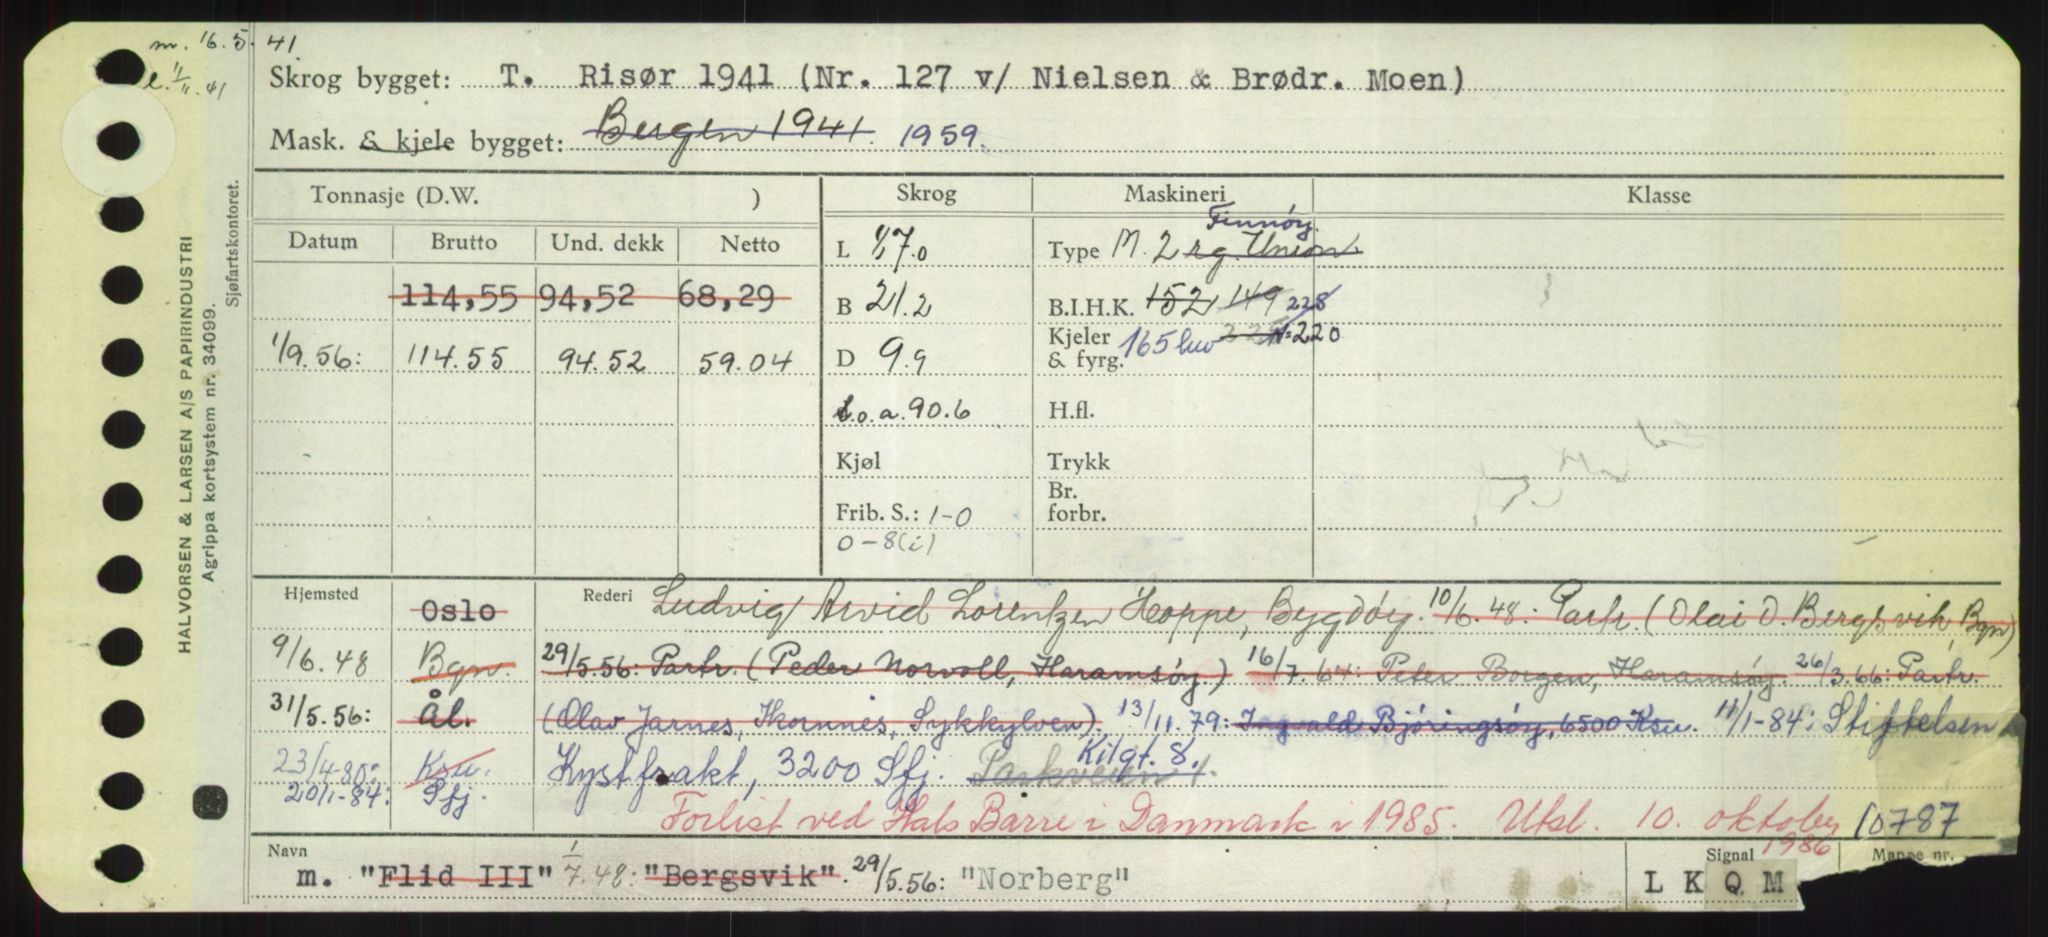 m. 16.5.41
l. 1/11.41
Skrog bygget: T. Risør 1941 (Nr. 127 v/ Nielsen & Brødr. Moen)
Mask. & kjele bygget: Bergen 1941. 1959.
HALVORSEN & LARSEN A/S PAPIRINDUSTRI
Agrippa kortsystem nr. 34099.
Sjøfartskontoret.
Tonnasje (D.W. ) Skrog Maskineri Klasse
Datum Brutto Und. dekk Netto
Finnöy.
L 7.0 Type M. 2 rg. Union
114,55 94,52 68,29 B 21.2 B.I.H.K. 152 149 228
1/9.56: 114.55 94.52 59.04 D 9.9 Kjeler & fyrg. 165 luv N=220
L.o.a. 90.6 H.fl.
Kjøl Trykk
Frib. S.: 1-0 Br. forbr.
0-8(i)
Hjemsted Oslo Rederi Ludvig Arvid Lorentzen Hoppe, Bygdöy. 10/6.48. Partr. (Olai O. Bergsvik, Bgn)
9/6.48 Bgn. 29/5.56: Partr. (Peder Norvoll, Haramsöy.) 16/7.64: Peter Borgen, Haramsöy. 26/3.66: Partr.
31/5.56: Ål. (Olav Jarnes, Ikornnes, Sykkylven). 13/11.79: Ingvald Björingsöy, 6500 Ksu. 11/1-84: Stiftelsen
23/4.80: Ksu. Kystfrakt, 3200 Sfj. Parkveien 1. Kilgt. 8.
20/1-84: Sfj.
Forlist ved Hals Barre i Danmark i 1985. Utsl. 10. oktober 1986
10787
Navn m. "Flid III" 1/7.48: "Bergsvik". 29/5.56: "Norberg"
Signal LKQM
Mappe nr.